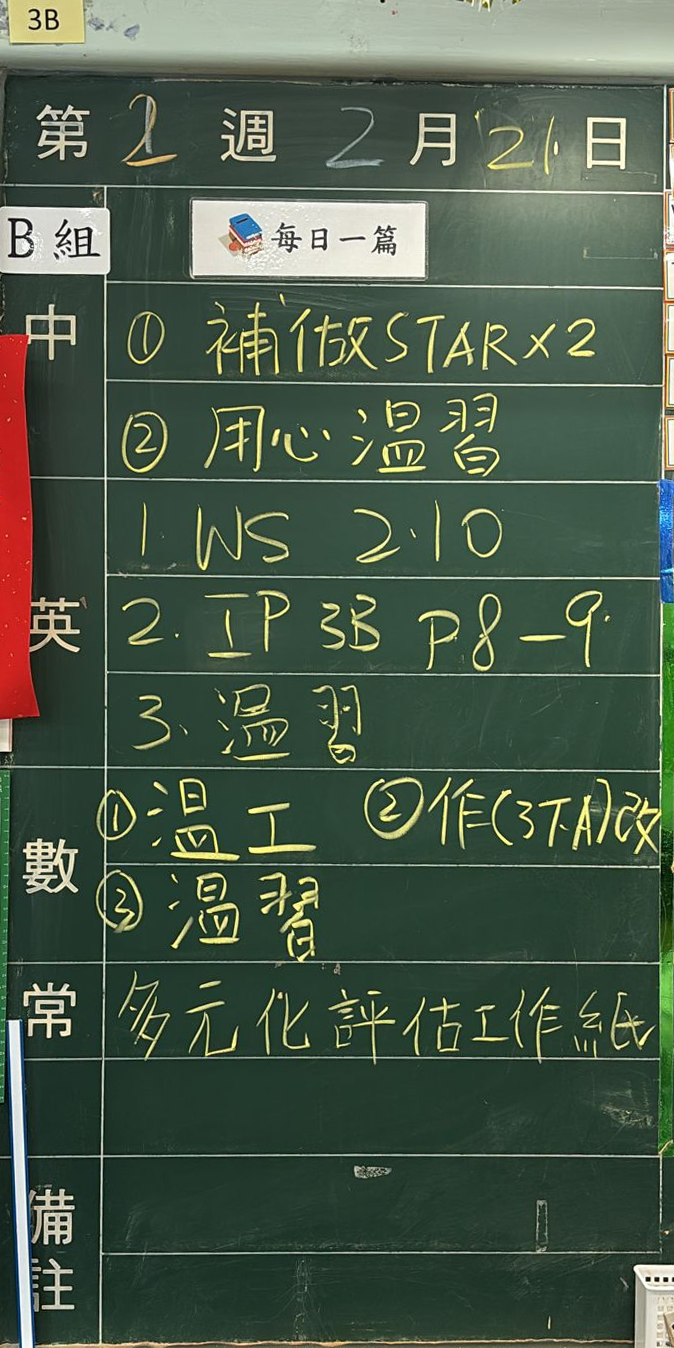 3B
第 1 週 2 月 21 日
B組 每日一篇
中 ① 補做STAR×2
② 用心溫習
1. WS 2.10
英 2. IP 3B P.8-9
3. 溫習
數 ①溫工 ②作(3下A)改
③溫習
常 多元化評估工作紙
備註